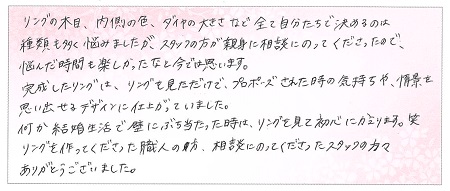 リングの木目、内側の色、ダイヤの大きさなど全て自分たちで決めるのは
種類も多く悩みましたが、スタッフの方が親身に相談にのってくださったので、
悩んだ時間も楽しかったなと今では思います。
完成したリングは、リングを見ただけで、プロポーズされた時の気持ちや、情景を
思い出せるデザインに仕上がっていました。
何か結婚生活で壁にぶち当たった時は、リングを見て初心にかえります。笑
リングを作ってくださった職人の方、相談にのってくださったスタッフの方々
ありがとうございました。